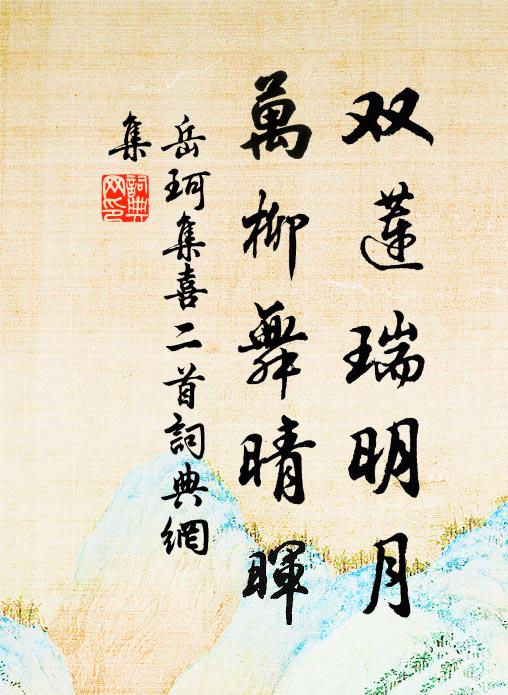 双莲瑞明月
萬柳舞晴暉
岳珂集喜二首詞典網
集
詞典
网印